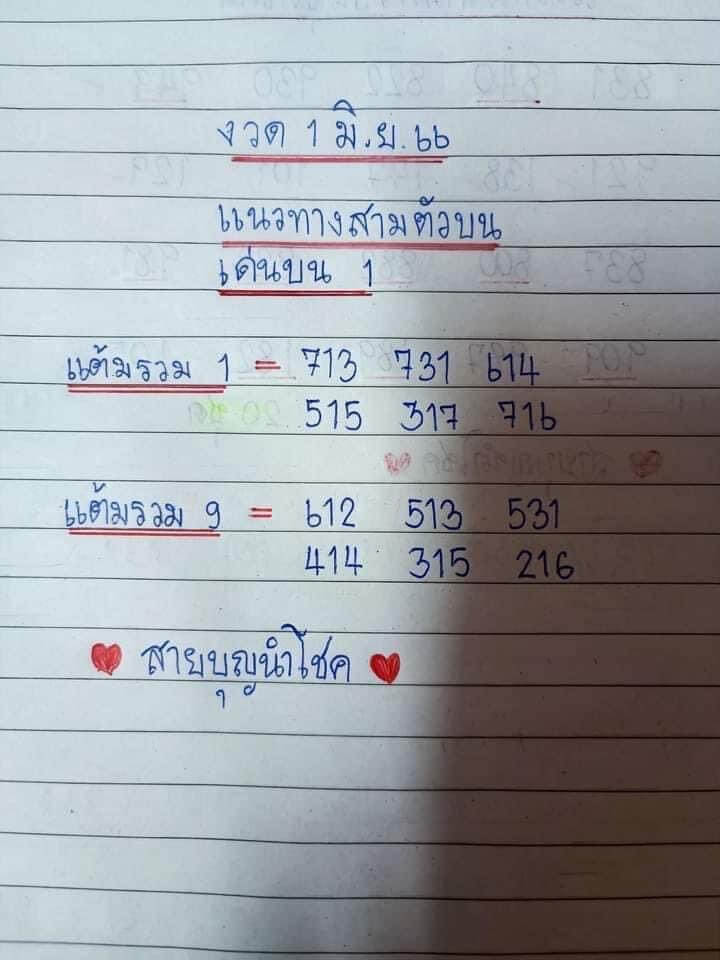 งวด 1 มิ.ย.66
แนวทางสามตัวบน
เด่นบน 1
แต้มรวม 1 = 713 731 614
515 317 716
แต้มรวม 9 = 612 513 531
414 315 216
สายบุญนำโชค